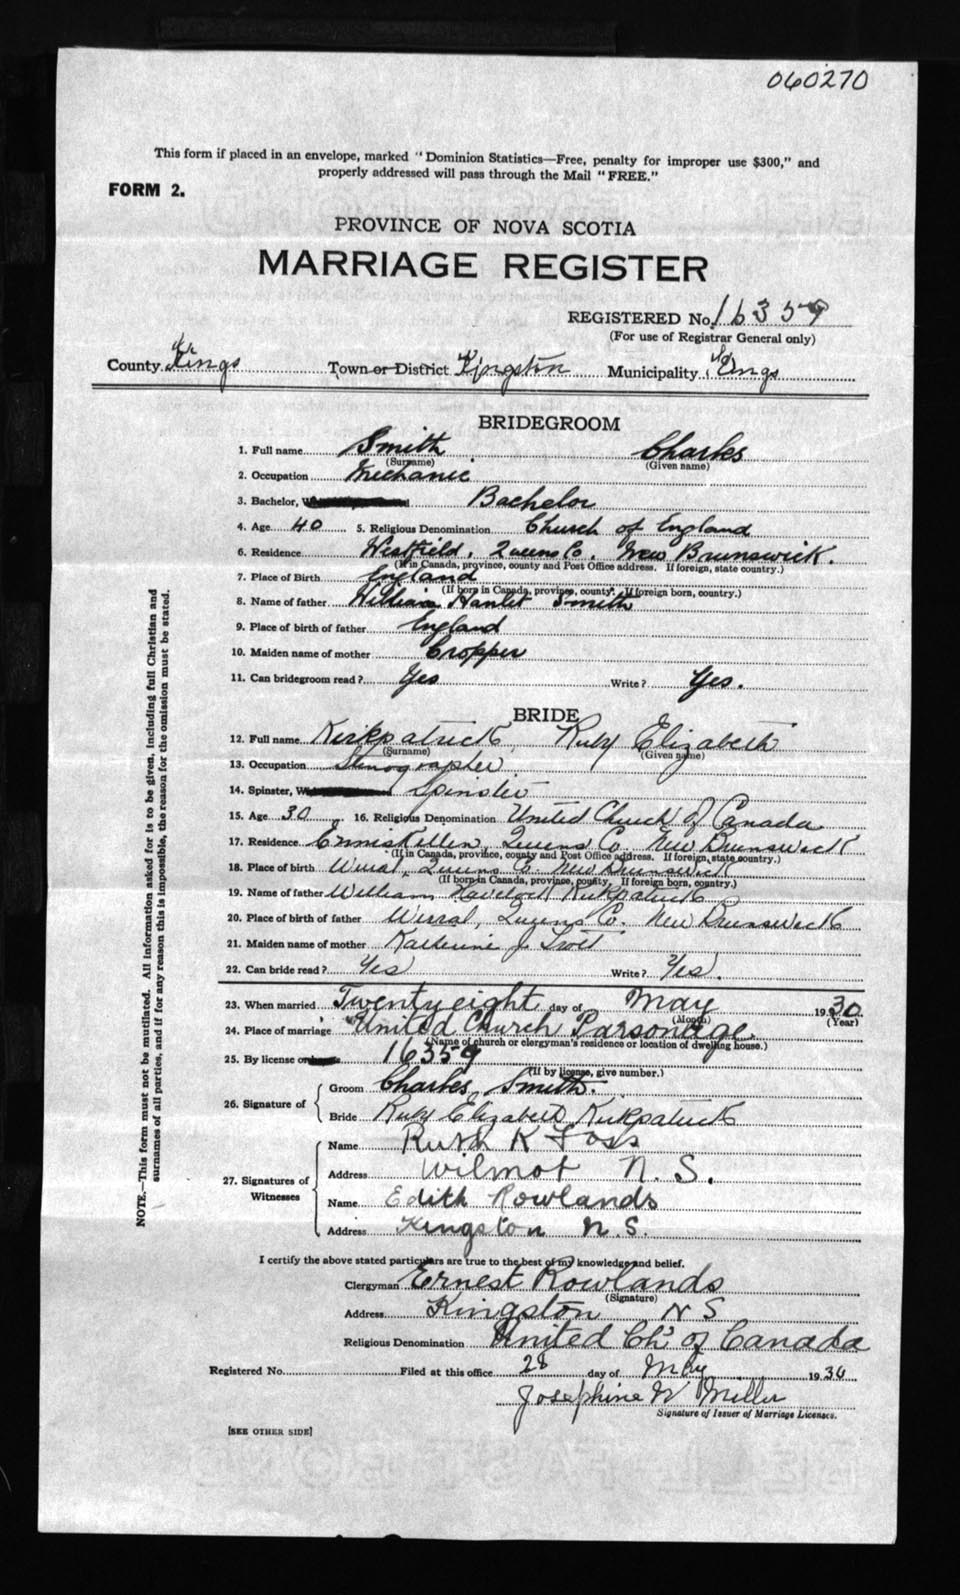 060270
This form if placed in an envelope, marked "Dominion Statistics—Free, penalty for improper use $300," and
properly addressed will pass through the Mail "FREE."
FORM 2.
PROVINCE OF NOVA SCOTIA
MARRIAGE REGISTER
REGISTERED No. 16359
(For use of Registrar General only)
County Kings Town or District Kingston Municipality Kings
BRIDEGROOM
1. Full name Smith Charles
(Surname) (Given name)
2. Occupation Mechanic
3. Bachelor, Bachelor
4. Age 40 5. Religious Denomination Church of England
6. Residence Westfield, Queens Co. New Brunswick.
(If in Canada, province, county and Post Office address. If foreign, state country.)
7. Place of Birth England
(If born in Canada, province, county. If foreign born, country.)
8. Name of father William Smith
9. Place of birth of father England
10. Maiden name of mother Cropper
11. Can bridegroom read? Yes Write? Yes.
BRIDE
12. Full name Kirkpatrick, Ruby Elizabeth
(Surname) (Given name)
13. Occupation Stenographer
14. Spinster, Spinster
15. Age 30 16. Religious Denomination United Church of Canada
17. Residence Enniskillen, Queens Co. New Brunswick
(If in Canada, province, county and Post Office address. If foreign, state country.)
18. Place of birth Wirral, Queens Co. New Brunswick
(If born in Canada, province, county, If foreign born, country.)
19. Name of father William Havelock Kirkpatrick
20. Place of birth of father Wirral, Queens Co. New Brunswick
21. Maiden name of mother Katherine J.
22. Can bride read? Yes Write? Yes.
23. When married Twenty eight day of May 1930
(Month) (Year)
24. Place of marriage United Church Parsonage
(Name of church or clergyman's residence or location of dwelling house.)
25. By license or 16359
(If by license, give number.)
26. Signature of Groom Charles Smith.
Bride Ruby Elizabeth Kirkpatrick
27. Signatures of Witnesses
Name Ruth K Foss
Address Wilmot N.S.
Name Edith Rowlands
Address Kingston N.S.
I certify the above stated particulars are true to the best of my knowledge and belief.
Clergyman Ernest Rowlands
(Signature)
Address Kingston NS
Religious Denomination United Ch. of Canada
Registered No. Filed at this office 28 day of May 1930
Josephine W Miller
Signature of Issuer of Marriage Licenses.
[SEE OTHER SIDE]
NOTE.—This form must not be mutilated. All information asked for is to be given, including full Christian and
surnames of all parties, and if for any reason this is impossible, the reason for the omission must be stated.